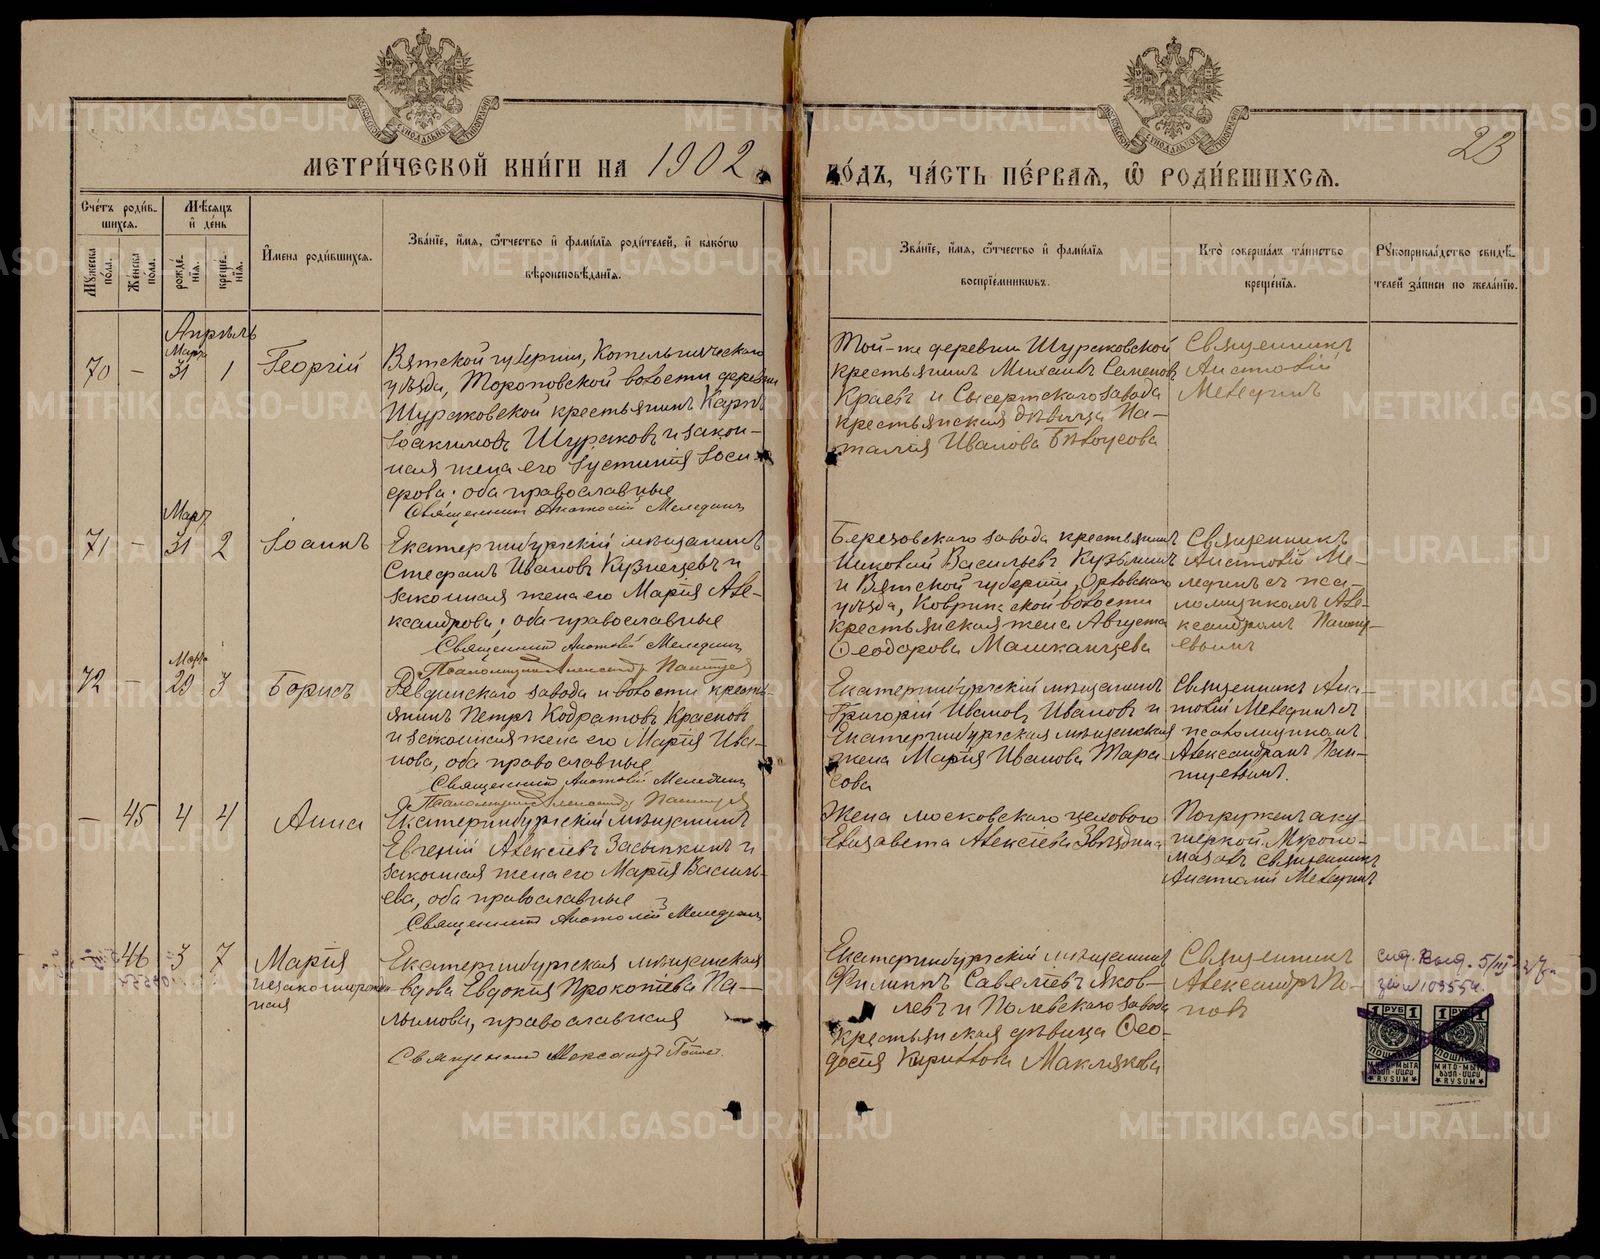 МЕТРИ́ЧЕСКОЙ КНИ́ГИ НА 1902
ГО́ДЪ, ЧА́СТЬ ПЕ́РВАЯ, Ѡ РОДИ́ВШИХСЯ.
23
Счетъ родив-
шихся.
Мѣсяцъ
и день
Мужеска
пола.
Женска
пола.
рожде-
нія.
креще-
нія.
Имена родившихся.
Званіе, имя, отчество и фамилія родителей, и какогѡ
вѣроисповѣданія.
Званіе, имя, отчество и фамилія
воспріемникѡвъ.
Кто совершалъ таинство
крещенія.
Рукоприкладство свидѣ-
телей записи по желанію.
Апрѣль
70 — Мартъ 31 1 Георгій
Вятской губерніи, Котельническаго
уѣзда, Тороповской волости деревни
Шураковской крестьянинъ Карпъ
Іоакимовъ Шураковъ и закон-
ная жена его Іустинія Іоси-
фова; оба православные
Священникъ Анатолій Мелединъ
Той-же деревни Шураковской
крестьянинъ Михаилъ Семеновъ
Краевъ и Сысертскаго завода
крестьянская дѣвица На-
талія Иванова Бѣлоусова
Священникъ
Анатолій
Мелединъ
71 — Мартъ 31 2 Іоаннъ
Екатеринбургскій мѣщанинъ
Стефанъ Ивановъ Кузнецовъ и
законная жена его Марія Але-
ксандрова; оба православные
Священникъ Анатолій Мелединъ
Псаломщикъ Александръ Пантуевъ
Березовскаго завода крестьянинъ
Николай Васильевъ Кузьминъ
и Вятской губерніи, Орловскаго
уѣзда, волости
крестьянская жена Августа
Ѳеодорова Машканцева
Священникъ
Анатолій Ме-
лединъ съ пса-
ломщикомъ Але-
ксандромъ Панту-
евымъ
72 — Мартъ 29 3 Борисъ
Ревдинскаго завода и волости кресть-
янинъ Петръ Кодратовъ Красновъ
и законная жена его Марія Ива-
нова, оба православные
Священникъ Анатолій Мелединъ
Псаломщикъ Александръ Пантуевъ
Екатеринбургскій мѣщанинъ
Григорій Ивановъ Ивановъ и
Екатеринбургская мѣщанская
жена Марія Иванова Тара-
сова
Священникъ Ана-
толій Мелединъ съ
псаломщикомъ
Александромъ Пан-
туевымъ.
— 45 4 4 Анна
Екатеринбургскій мѣщанинъ
Евгеній Алексѣевъ Засыпкинъ и
законная жена его Марія Василь-
ева, оба православные
Священникъ Анатолій Мелединъ
Жена московскаго цехового
Елизавета Алексѣева Звѣздина
Погруженъ аку-
шеркой. Муропо-
мазалъ священникъ
Анатолій Мелединъ
— 46 3 7 Марія
незаконнорожден-
ная
Екатеринбургская мѣщанская
вдова Евдокія Прокопіева На-
лимова, православная
Священникъ Александръ Поповъ.
Екатеринбургскій мѣщанинъ
Филиппъ Савеліевъ Яков-
левъ и Полевскаго завода
крестьянская дѣвица Ѳео-
досія Кириллова Маклакова
Священникъ
Александръ По-
повъ
№ 109554.
1 РУБ 1
ПОШЛИНА
МИТО-МЫТА
RYSUM
1 РУБ 1
ПОШЛИНА
МИТО-МЫТА
RYSUM
METRIKI.GASO-URAL.RU